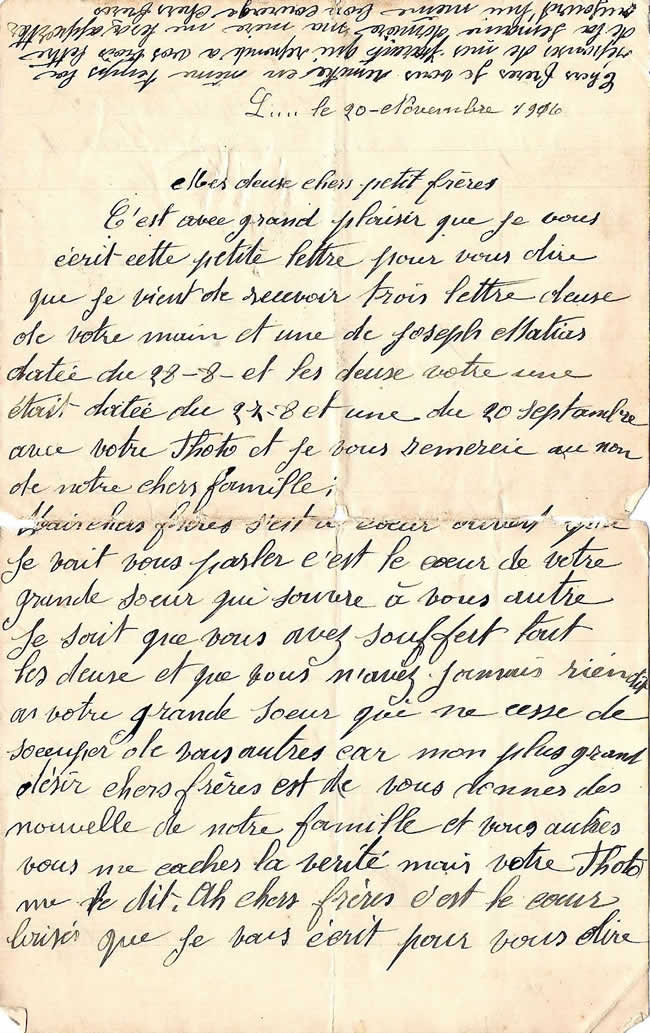 Chers frères je vous remette en même temps les
réponses de mes parents qui répond a vos trois lettre
de la semaine dernière ma mère me les a apporter
aujourd'hui même bon courage chers frères
L.... le 20-Novembre 1916
Mes deuse chers petit frères
C'est avec grand plaisir que je vous
écrit cette petite lettre pour vous dire
que je vient de recevoir trois lettre deuse
de votre main et une de Joseph Matias
datée du 28-8- et les deuse votre une
était datée du 27-8 et une du 20 septembre
avec votre Photo et je vous remercie au non
de notre chers famille;
Mais chers frères s'est a coeur ouvert que
je vait vous parler c'est le coeur de votre
grande soeur qui souvre à vous autre
je sait que vous avez souffert tout
les deuse et que vous n'avez jamais rien dit
as votre grande soeur qui ne cesse de
soccuper de vous autres car mon plus grand
désir chers frères est de vous donner des
nouvelle de notre famille et vous autres
vous me cacher la verité mais votre Photo
me le dit. Ah chers frères c'est le coeur
brisés que je vous écrit pour vous dire